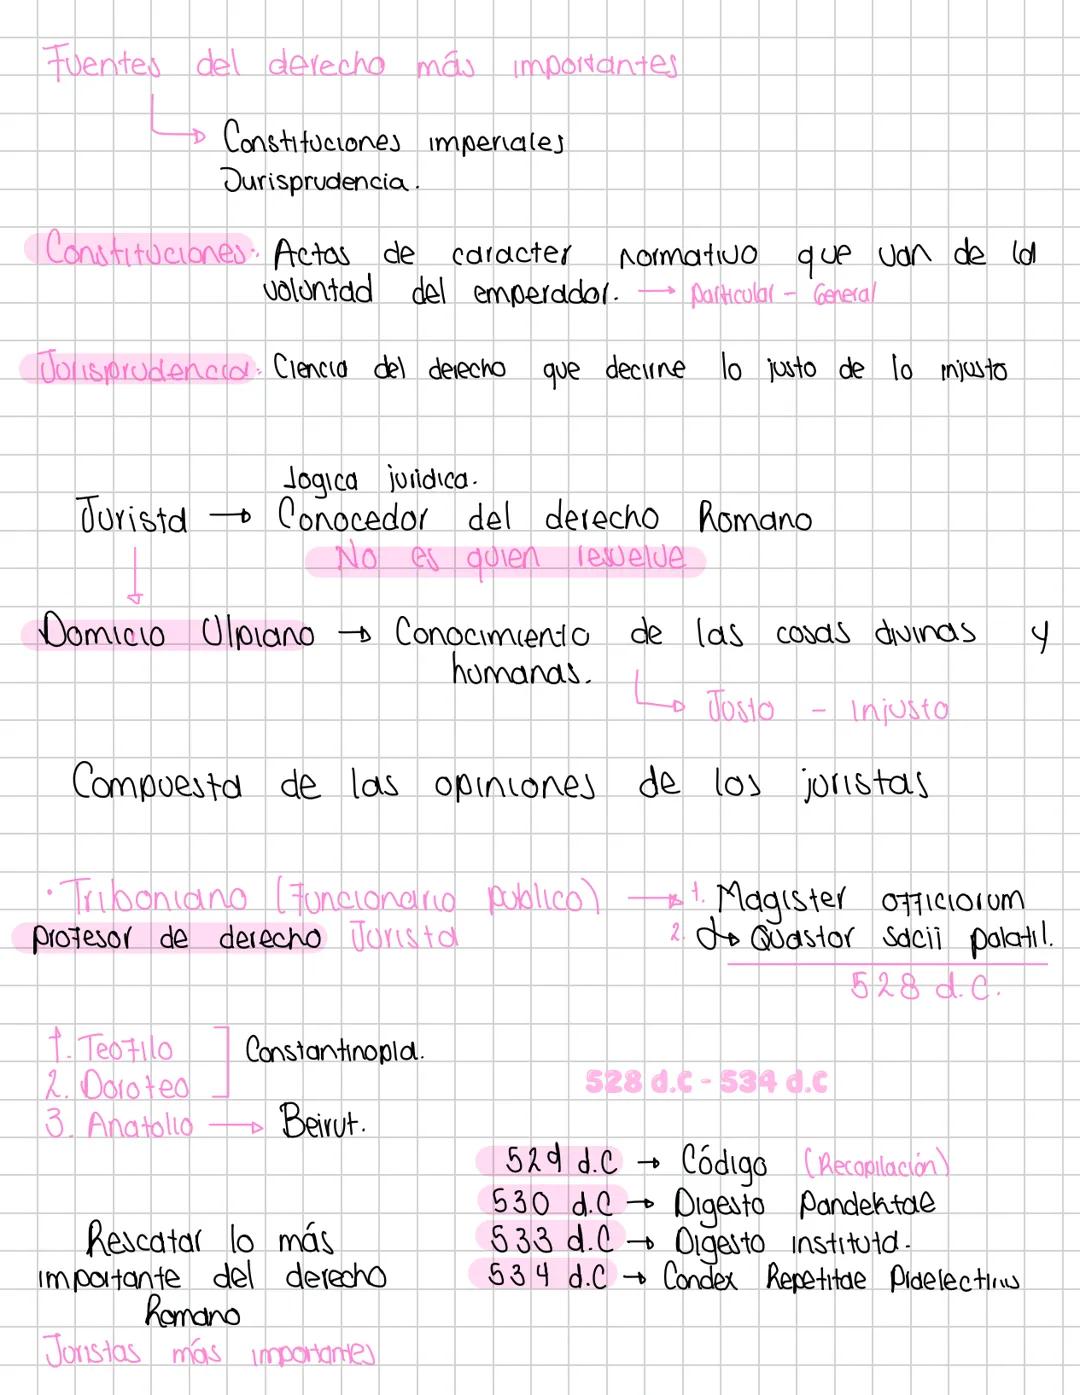 Fuentes del derecho más importantes
Constituciones imperiales
Jurisprudencia.
Constituciones: Actos de caracter normativo que van de la
voluntad del emperador. → particular - General
Jurisprudencia: Ciencia del derecho que decirne lo justo de lo injusto
logica juridica.
Jurista → Conocedor del derecho Romano
No es quien resuelve
Domicio Ulpiano → Conocimiento de las cosas divinas y
humanas.
Justo - injusto
Compuesta de las opiniones de los juristas
· Triboniano (Funcionario publico) → 1. Magister officiorum
profesor de derecho Jurista 2. → Quastor Sacii palatil.
528 d.C.
1. Teofilo
2. Doroteo
Constantinopla.
3. Anatolio → Beirut.
528 d.C - 534 d.C
529 d.C → Código (Recopilación)
530 d.C → Digesto Pandektae
533 d.C → Digesto instituta.
534 d.C → Condex Repetitae
Rescatar lo más
importante del derecho
Romano
Juristas más importantes